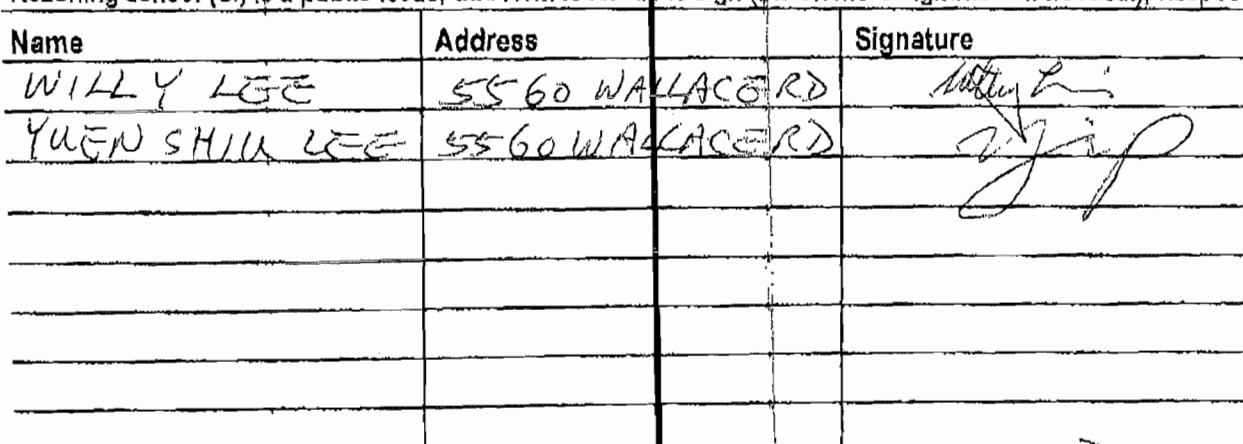 Name Address Signature
WILLY LEE 5560 WALLACE RD
YUEN SHIU LEE 5560 WALLACE RD